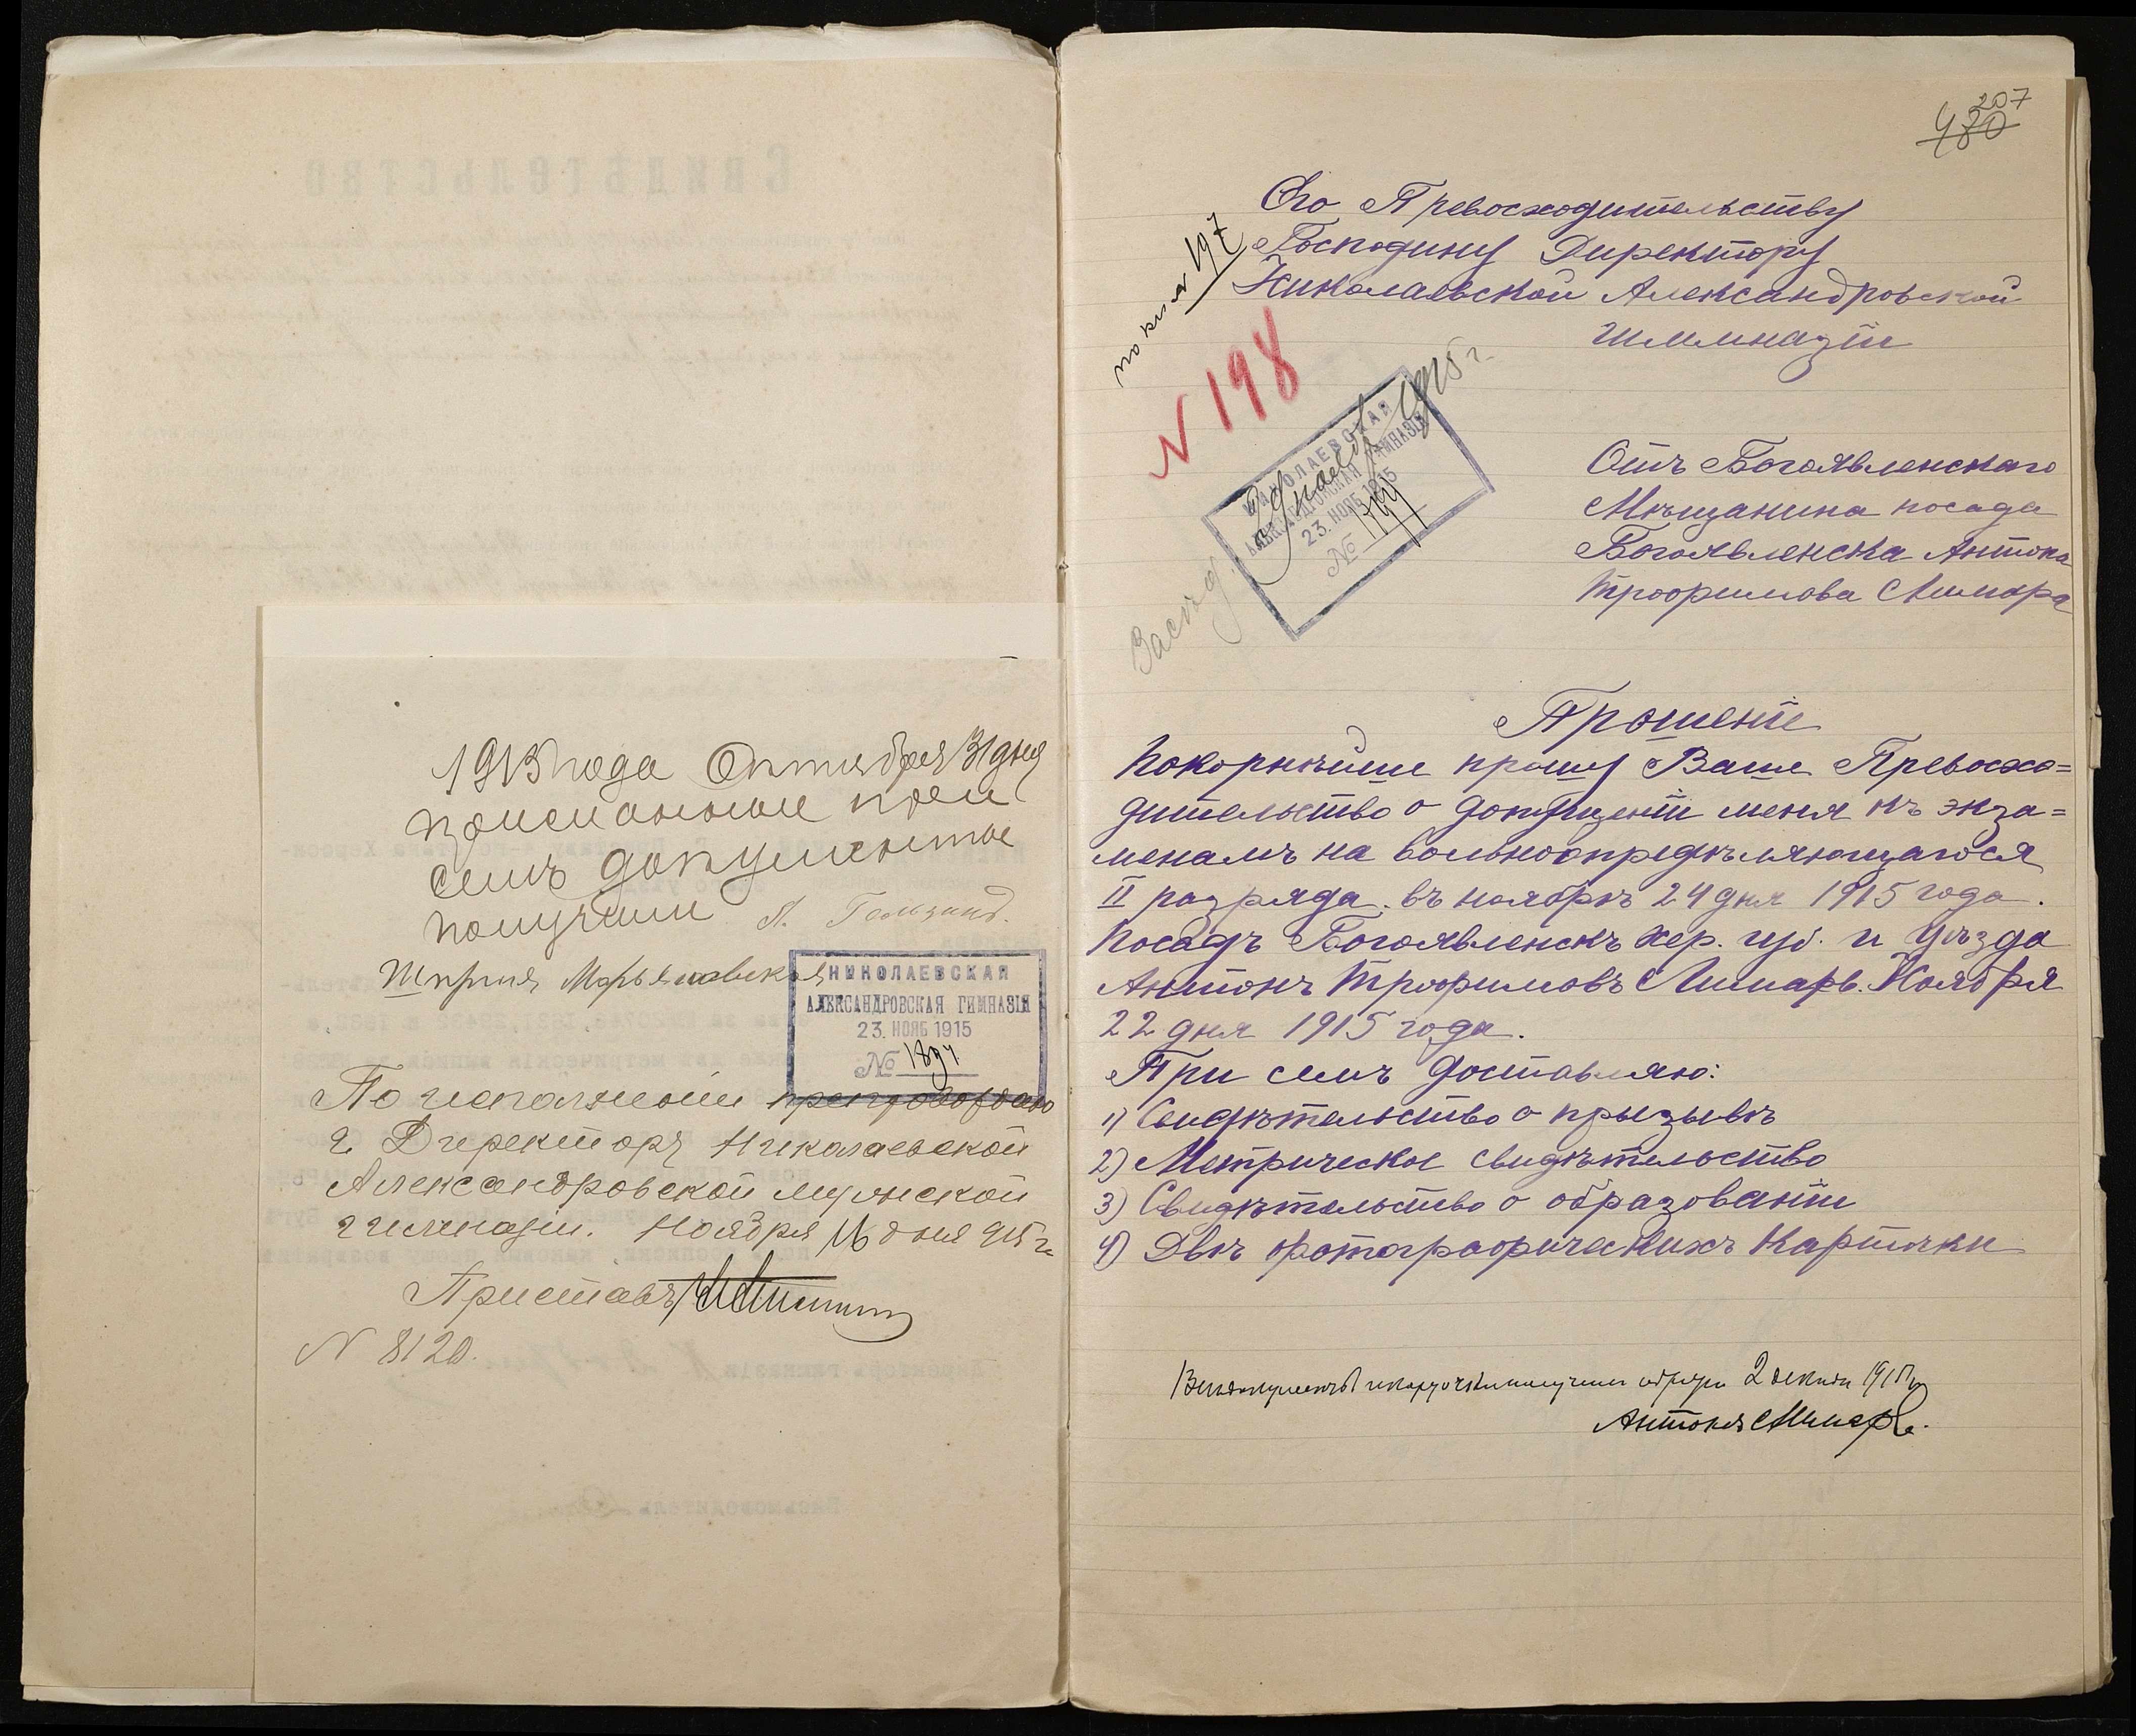 1915 года Октября 31 дня
поименованные при
семъ документы
получили Л. Гользинд.
Марьяновская
НИКОЛАЕВСКАЯ
АЛЕКСАНДРОВСКАЯ ГИМНАЗІЯ
23. НОЯБ 1915
№ 1894
По исполненіи препровождаю
г. Директору Николаевской
Александровской мужской
гимназіи. Ноября 16 дня 915 г.
Приставъ
N 8120.
207
480
Его Превосходительству
Господину Директору
Николаевской Александровской
гимназіи
по кн. N 197
N 198
НИКОЛАЕВСКАЯ
АЛЕКСАНДРОВСКАЯ ГИМНАЗІЯ
23. НОЯБ 1915
№
1915 г.
Отъ Богоявленскаго
Мѣщанина посада
Богоявленска Антона
Трофимова Лимаря
Прошеніе
Покорнѣйше прошу Ваше Превосхо=
дительство о допущеніи меня къ экза=
менамъ на вольноопредѣляющагося
II разряда. въ ноябрѣ 24 дня 1915 года.
Посадъ Богоявленскъ Хер. губ. и уѣзда
Антонъ Трофимовъ Лимарь. Ноября
22 дня 1915 года.
При семъ доставляю:
1) Свидѣтельство о призывѣ
2) Метрическое свидѣтельство
3) Свидѣтельство о образованіи
4) Двѣ фотографическихъ карточки
Всѣ документы и карточки получилъ обратно 2 декабря 1915 г.
Антонъ Лимарь.